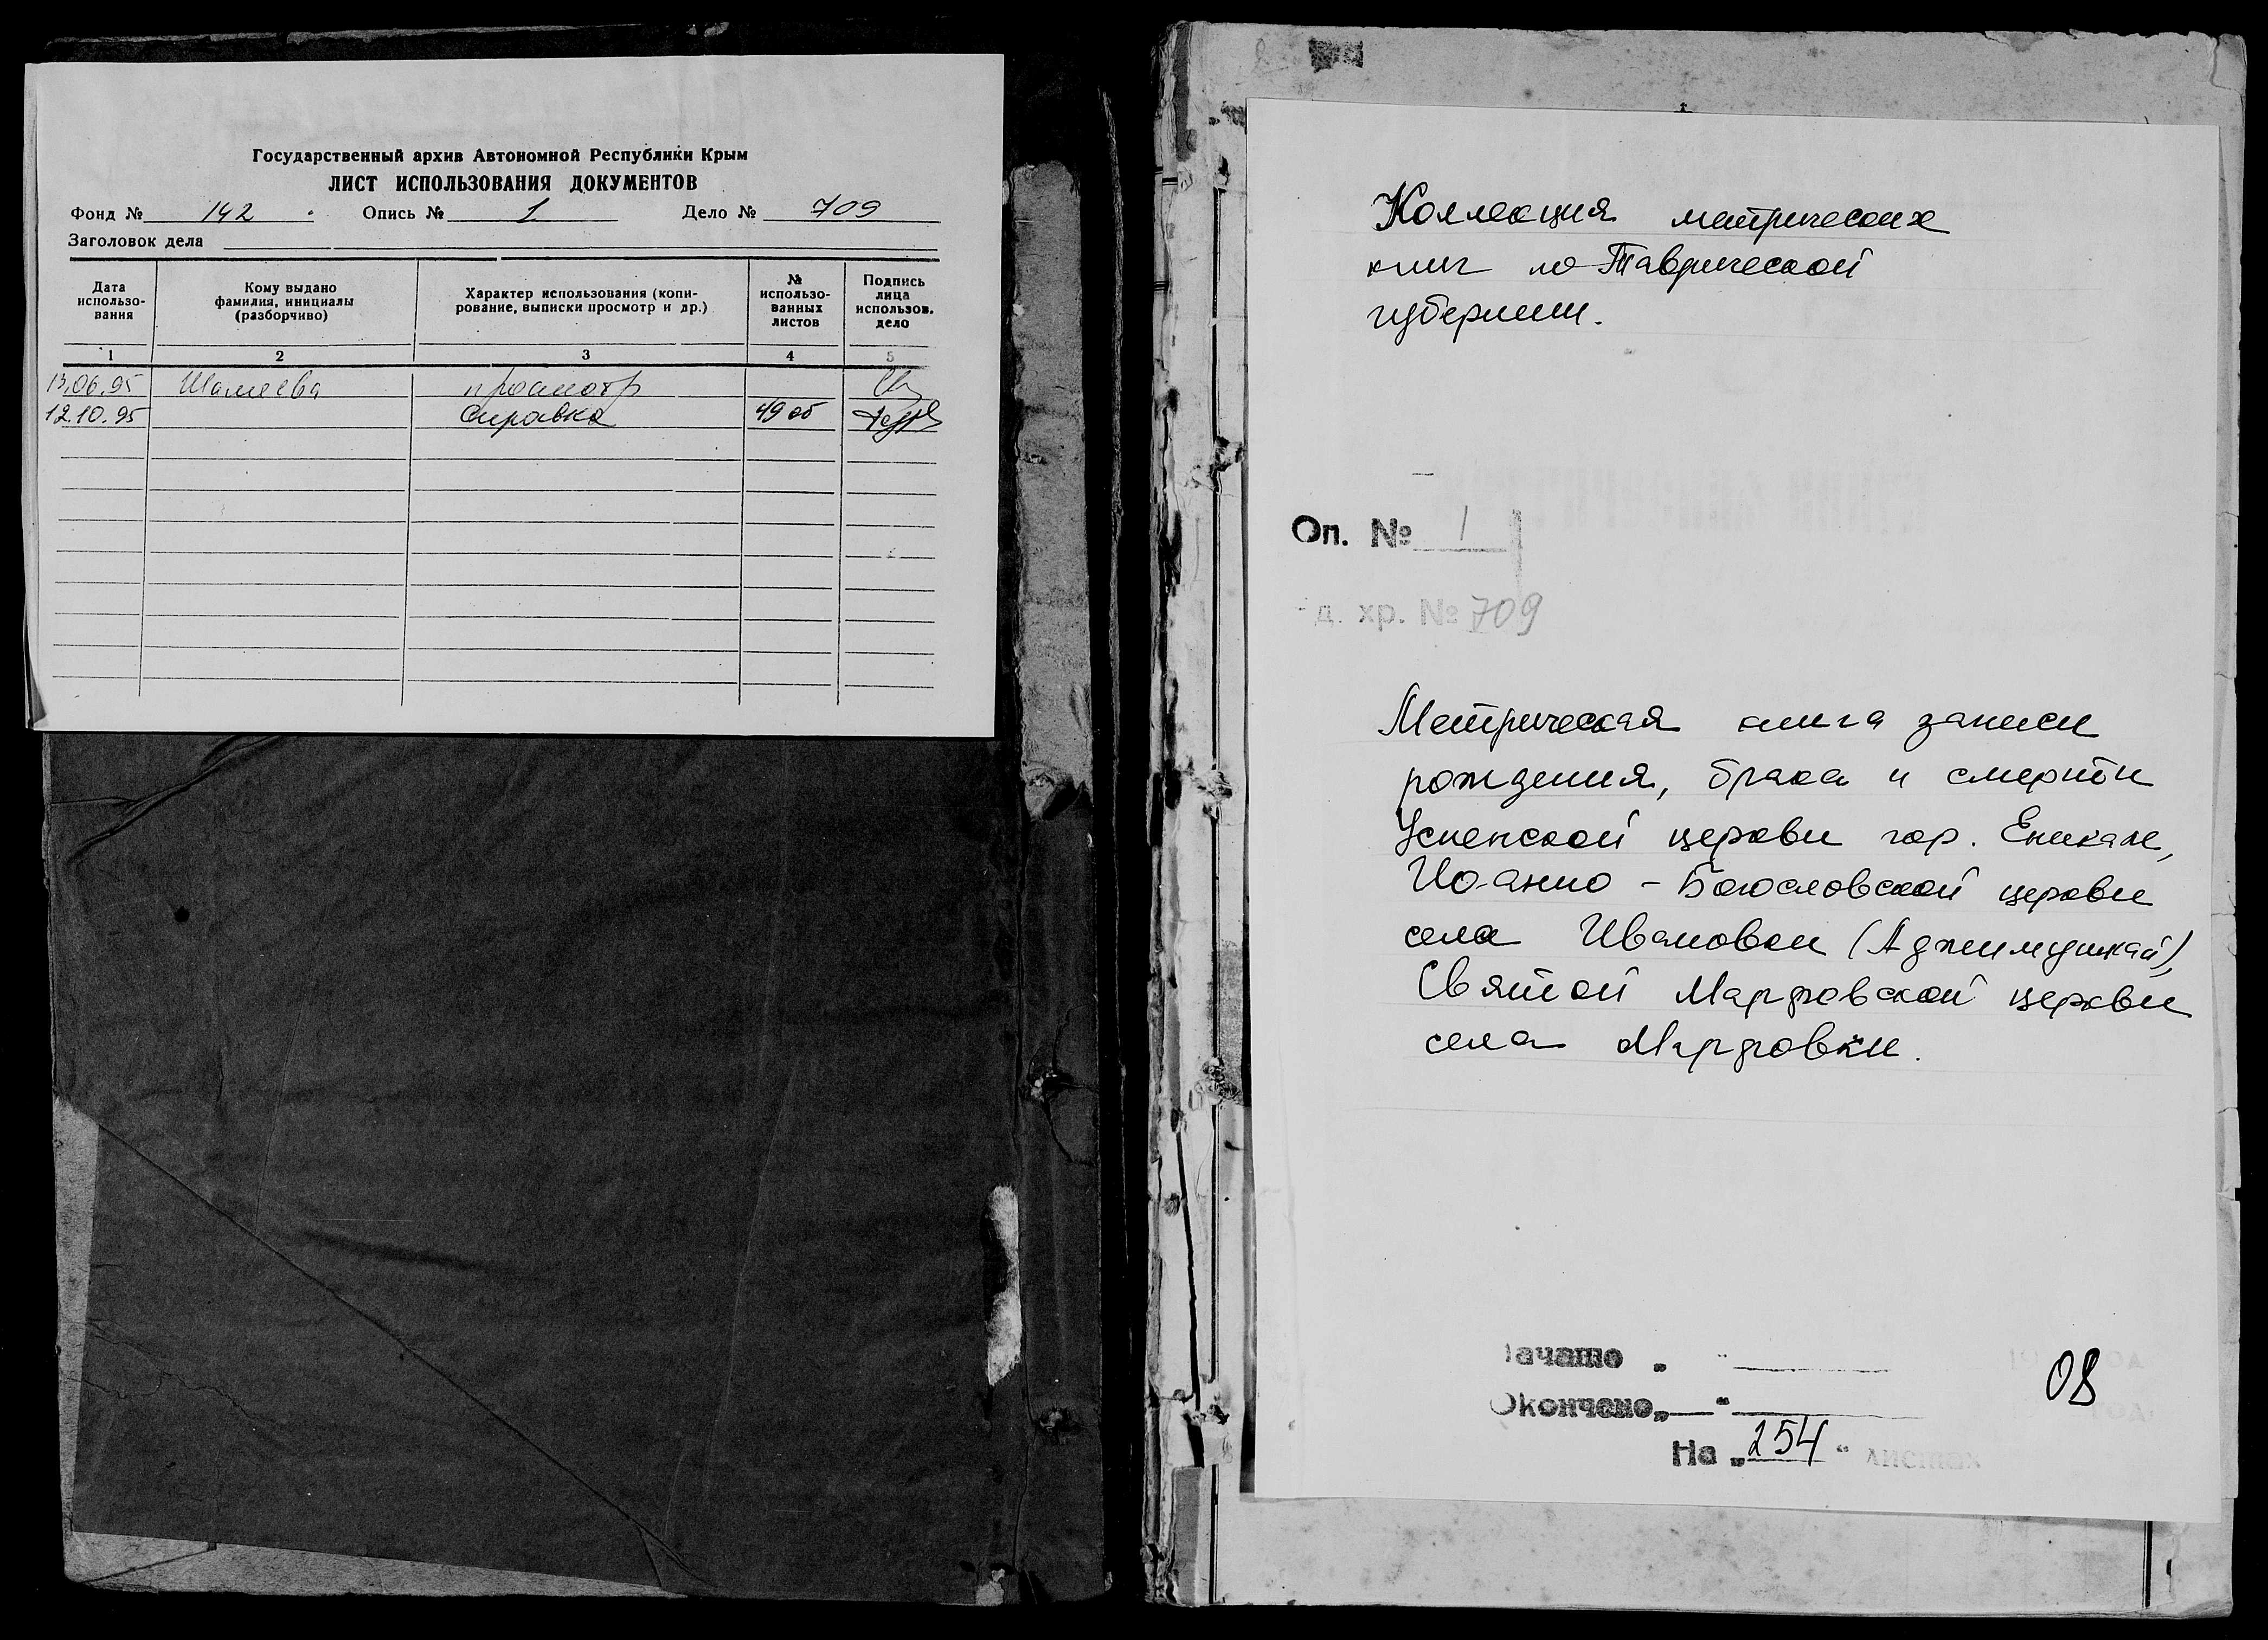 Государственный архив Автономной Республики Крым
ЛИСТ ИСПОЛЬЗОВАНИЯ ДОКУМЕНТОВ
Фонд № 142 Опись № 1 Дело № 709
Заголовок дела
Дата использо-вания
Кому выдано фамилия, инициалы (разборчиво)
Характер использования (копи-рование, выписки просмотр и др.)
№ использо-ванных листов
Подпись лица использов. дело
1 2 3 4 5
13.06.95 просмотр
12.10.95 Справка 49 об
Коллекция метрических
книг по Таврической
губернии.
Оп. № 1
д. хр. № 709
Метрическая книга записи
рождения, брака и смерти
Успенской церкви гор. Еникале,
Иоанно - Богословской церкви
села Ивановки (Аджимушкай),
Святой Марфовской церкви
села Марфовки.
Начато „ “
Окончено „ “
08
На „254“ листах